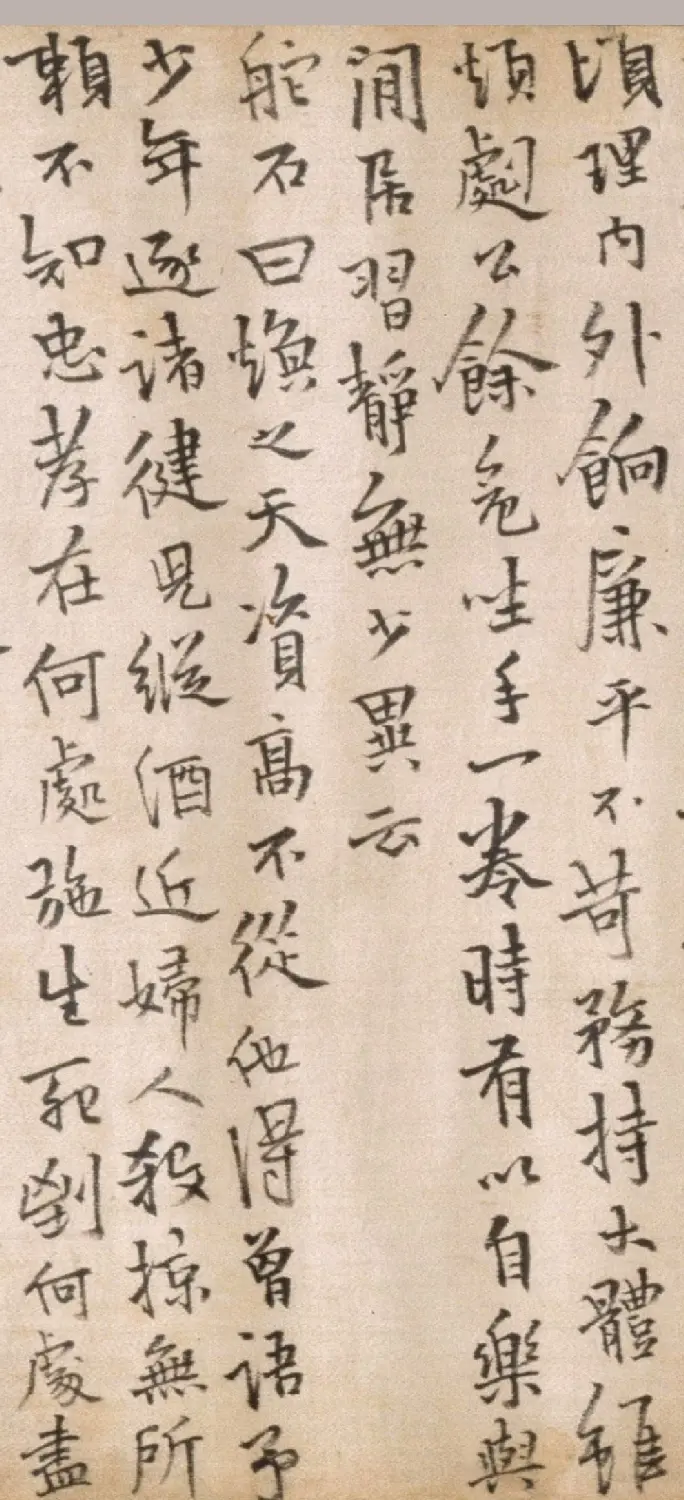 頃理內外餉廉平不苛務持大體雖
煩劇公餘危坐手一卷時有以自樂與
閒居習靜無少異云
舵石曰煥之天資高不從他得曾語予
少年逐諸健兒縱酒近婦人殺掠無所
賴不知忠孝在何處施生死劉何處盡